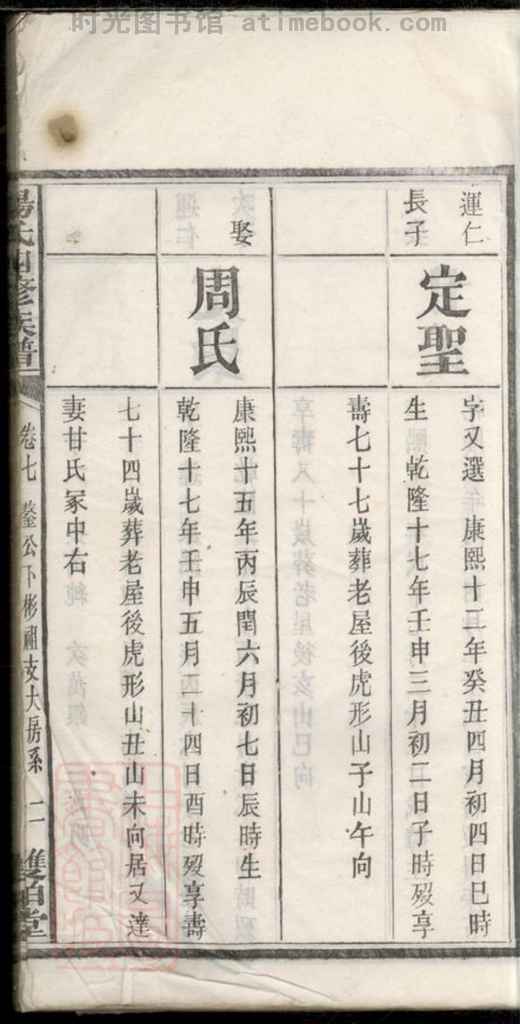 时光图书馆 atimebook.com
運仁
長子
定聖
字又選 康熙十二年癸丑四月初四日巳時
生 乾隆十七年壬申三月初二日子時歿享
壽七十七歲葬老屋後虎形山子山午向
娶
周氏
康熙十五年丙辰閏六月初七日辰時生
乾隆十七年壬申五月二十四日酉時歿享壽
七十四歲葬老屋後虎形山丑山未向居又達
妻甘氏冢中右
氏四修族譜
卷七
公下彬祖支大房系
二
雙桂堂